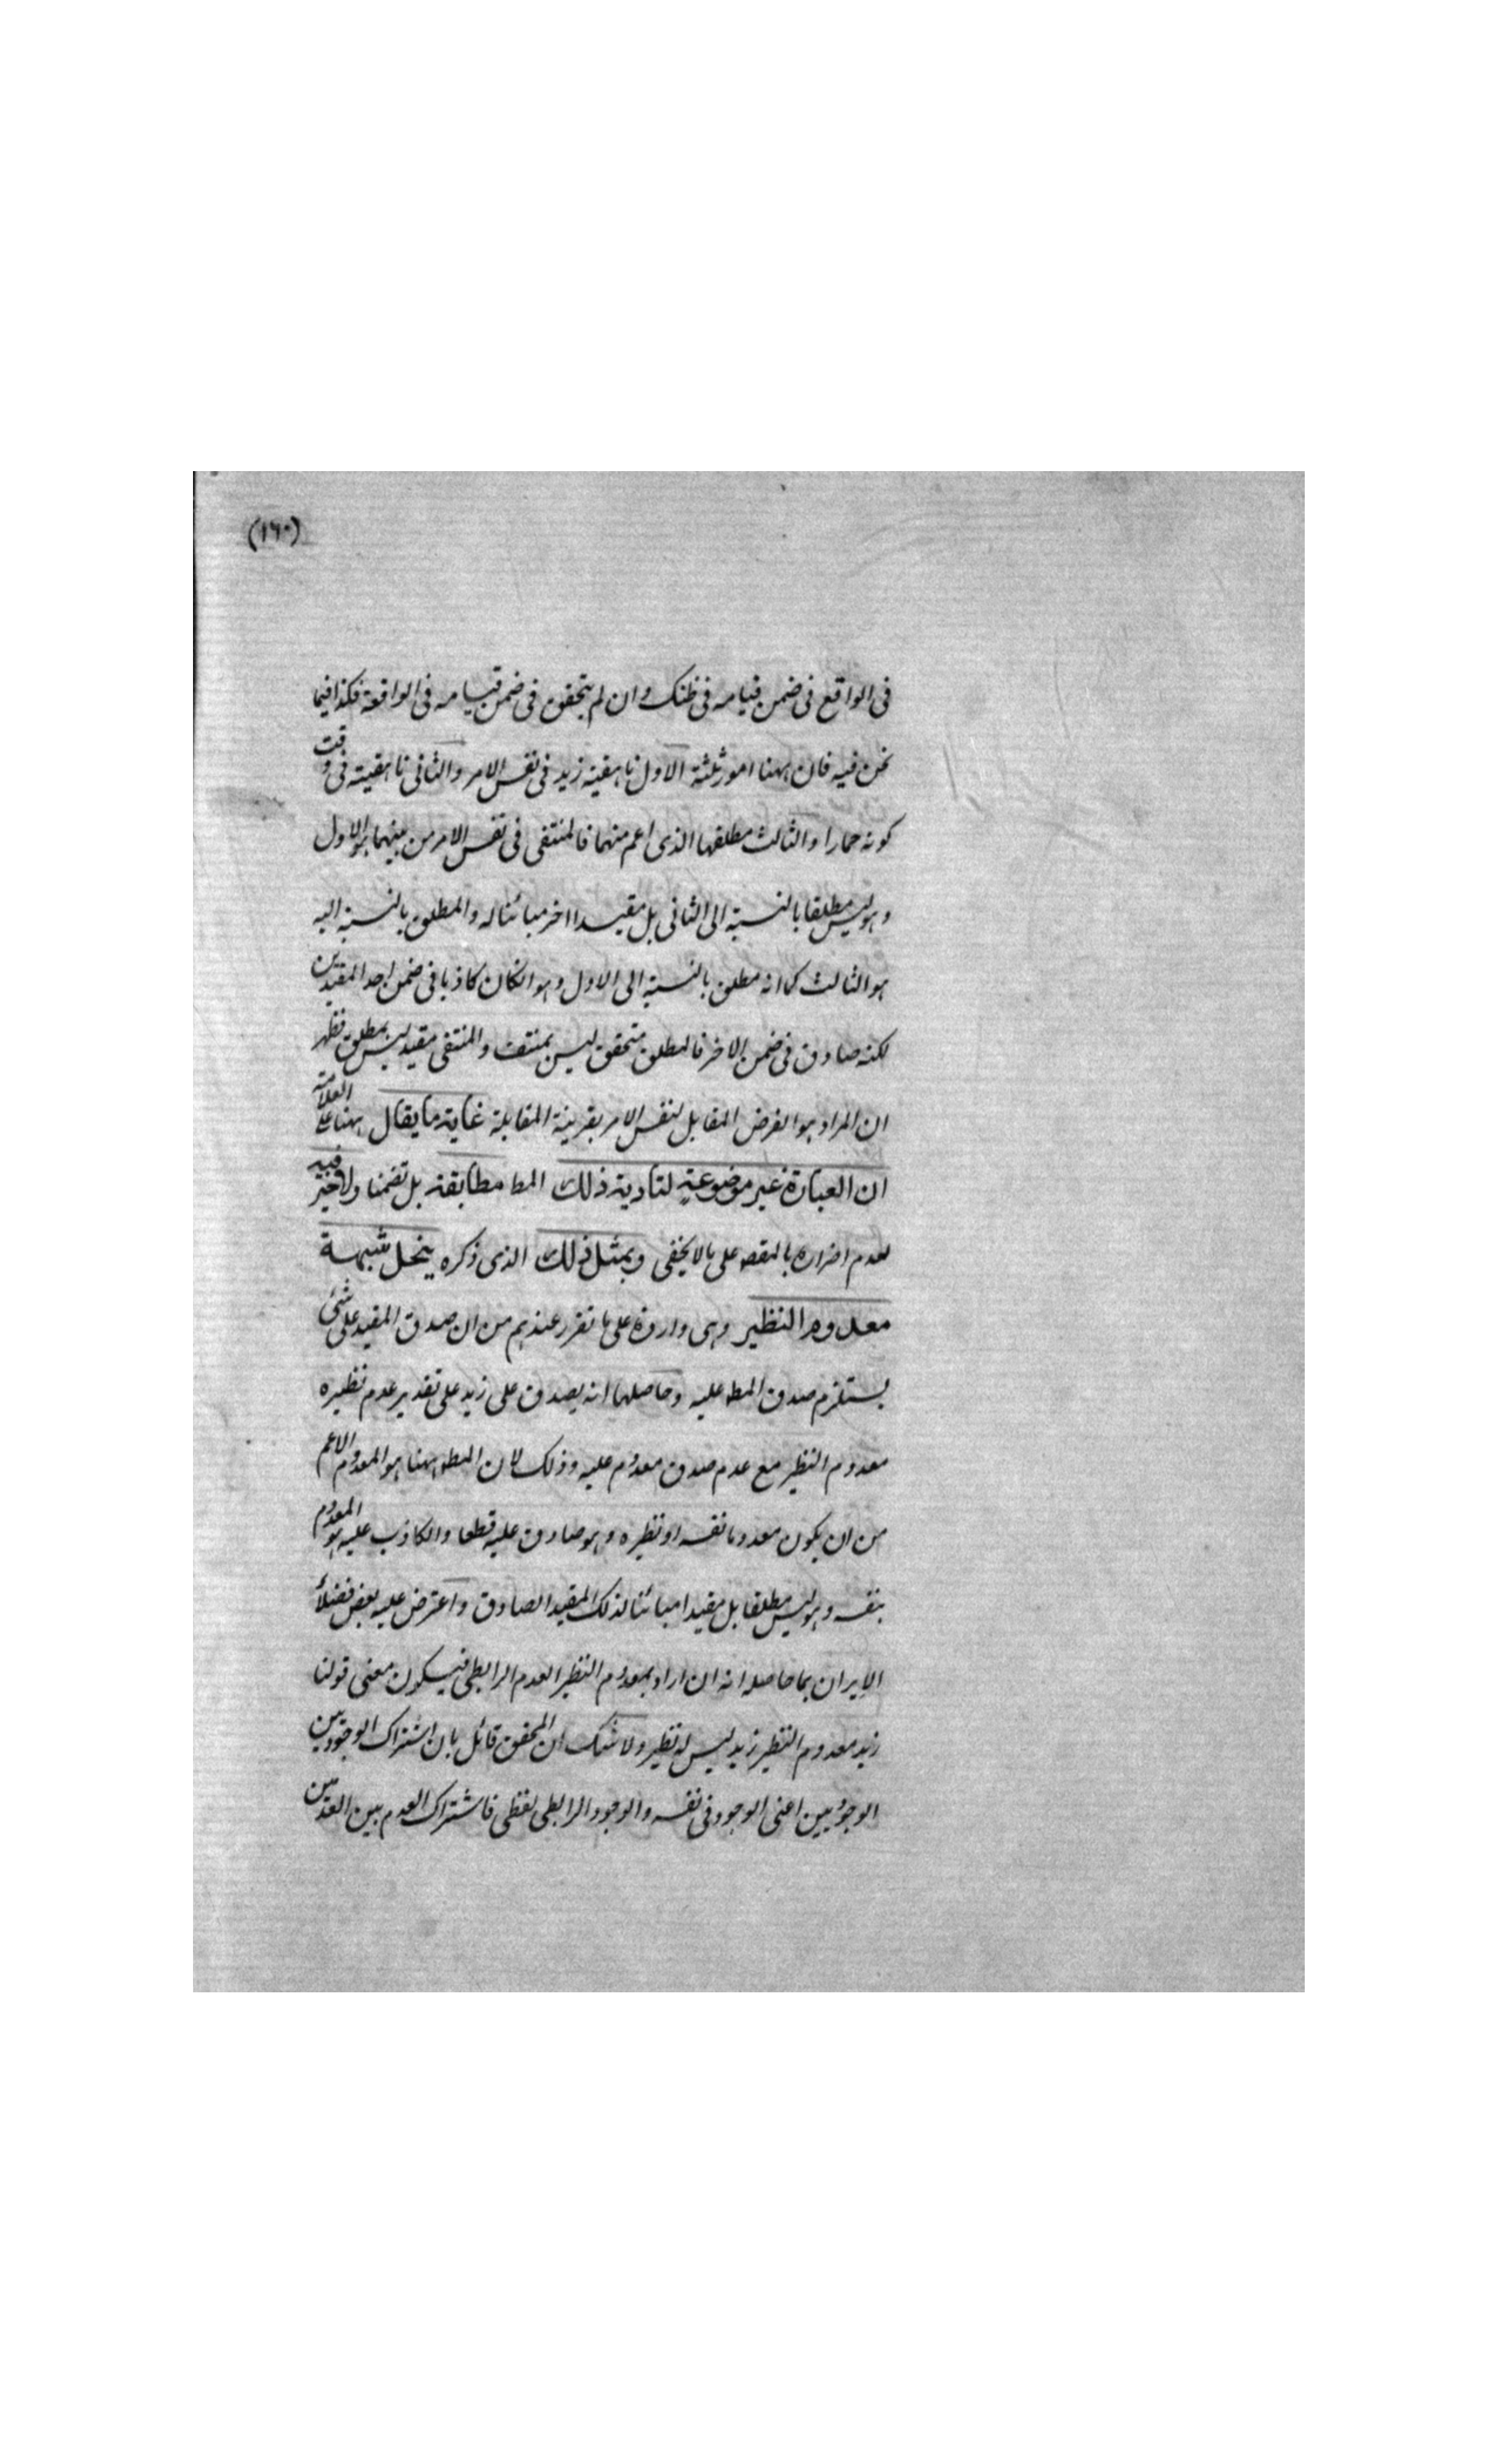 (١٦٠)
فى الواقع فى ضمن قيامه فى ظنك وان لم يتحقق فى ضمن قيامه فى الواقعة فكذا فيما
نحن فيه فان ههنا امور ثلثة الاول ناهقية زيد فى نفس الامر والثانى ناهقيته فى وقت
كونه حمارا والثالث مطلقها الذى اعم منهما فالمنتفى فى نفس الامر من بينهما هو الاول
وهو ليس مطلقا بالنسبة الى الثانى بل مقيدا اخر مبائنا له والمطلق بالنسبة اليه
هو الثالث كما انه مطلق بالنسبة الى الاول وهو انكان كاذبا فى ضمن احد المقيدين
لكنه صادق فى ضمن الاخر فالمطلق متحقق ليس بمنتف والمنتفى مقيد ليس بمطلق فظهر
ان المراد هو الفرض المقابل لنفس الامر بقرينة المقابلة غاية ما يقال ههنا على العلامة
ان العبارة غير موضوعة لتادية ذلك المط مطابقة بل تضمنا ولا خير فيه
لعدم اضراره بالمقص على ما لا يخفى وبمثل ذلك الذى ذكره ينحل شبهة
معدوم النظير وهى واردة على ما تقرر عندهم من ان صدق المقيد على شئ
يستلزم صدق المط عليه وحاصلها انه يصدق على زيد على تقدير عدم نظيره
معدوم النظير مع عدم صدق معدوم عليه وذلك لان المط ههنا هو المعدوم الاعم
من ان يكون معدوما نفسه او نظيره وهو صادق عليه قطعا والكاذب عليه هو المعدوم
بنفسه وهو ليس مطلقا بل مقيدا مبائنا لذلك المقيد الصادق واعترض عليه بعض فضلأ
الايران بما حاصله انه ان اراد بمعدوم النظير العدم الرابطى فيكون معنى قولنا
زيد معدوم النظير زيد ليس له نظير ولا شك ان المحقق قائل بان اشتراك الوجود بين
الوجودين اعنى الوجود فى نفسه والوجود الرابطى لفظى فاشتراك العدم بين العدمين